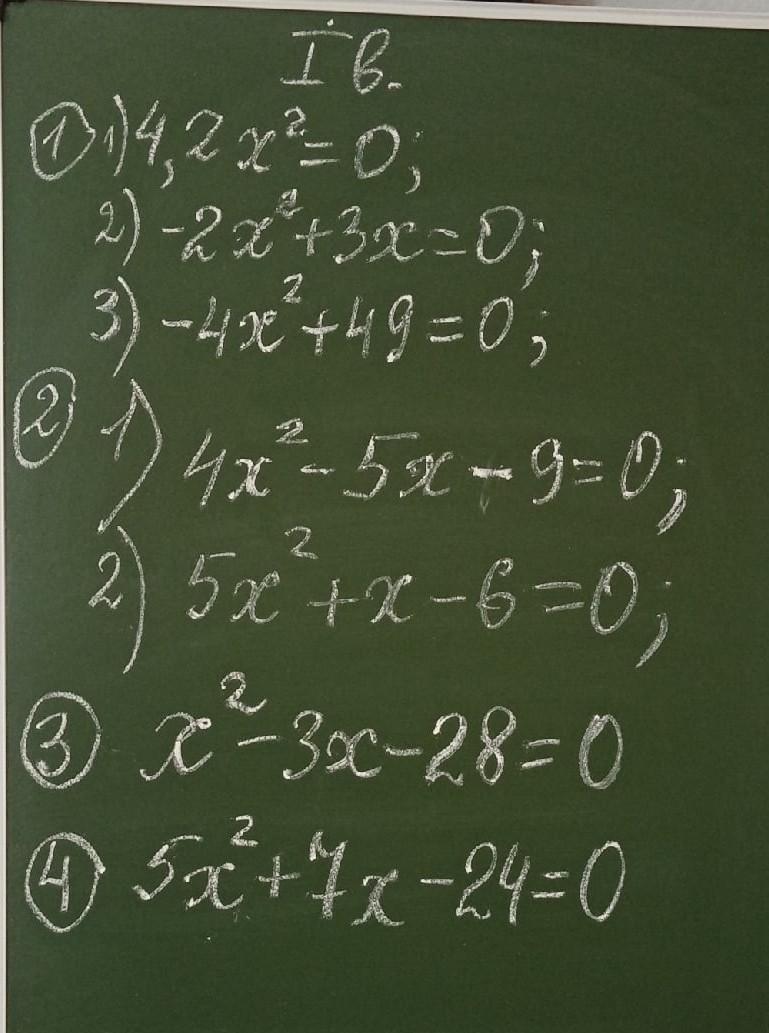 I в.
① 1) 4,2x² = 0;
2) -2x² + 3x = 0;
3) -4x² + 49 = 0;
② 1) 4x² - 5x - 9 = 0;
2) 5x² + x - 6 = 0;
③ x² - 3x - 28 = 0
④ 5x² + 7x - 24 = 0